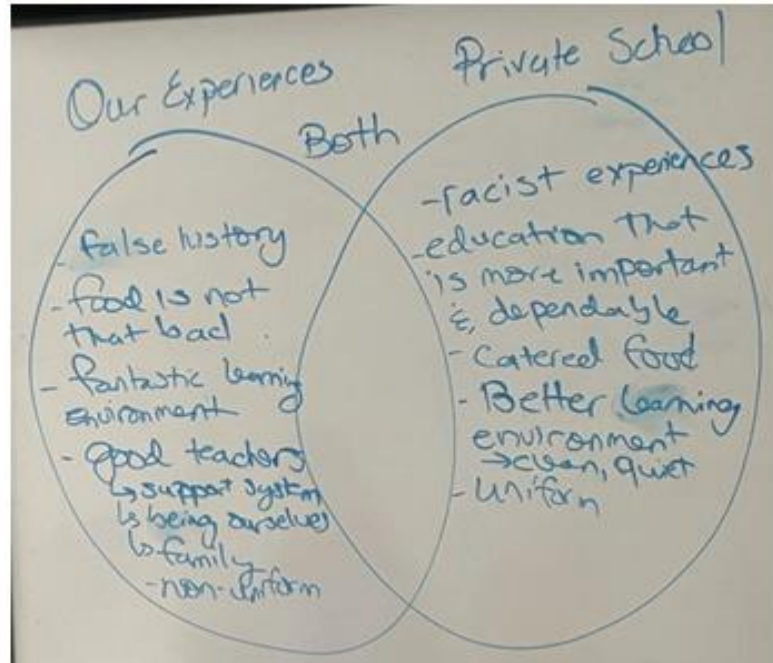 Our Experiences
Both
Private School
- false history
- food is not
that bad
- fantastic learning
environment
- good teachers
↳ support system
↳ being ourselves
↳ family
- non-uniform
- racist experiences
- education that
is more important
& dependable
- Catered food
- Better learning
environment
→ clean, quiet
- uniform